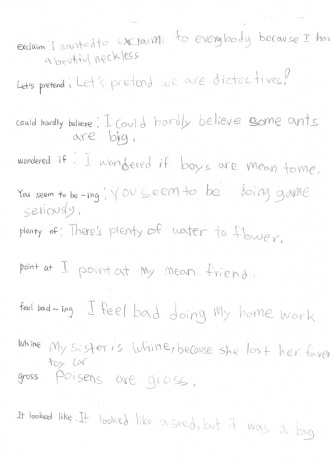 exclaim I wanted to exclaim to everybody because I ha
a beutiful neckless
Let's pretend : Let's pretend we are dictectives!
could hardly believe : I could hardly believe some ants
are big.
wondered if : I wondered if boys are mean to me.
You seem to be ~ing : You seem to be doing game
seriously.
plenty of : There's plenty of water to flower.
point at I point at my mean friend.
feel bad ~ing I feel bad doing my home work
Whine My sister is whine, because she lost her faver
toy car
gross Poisens are gross.
It looked like It looked like a seed, but it was a bug